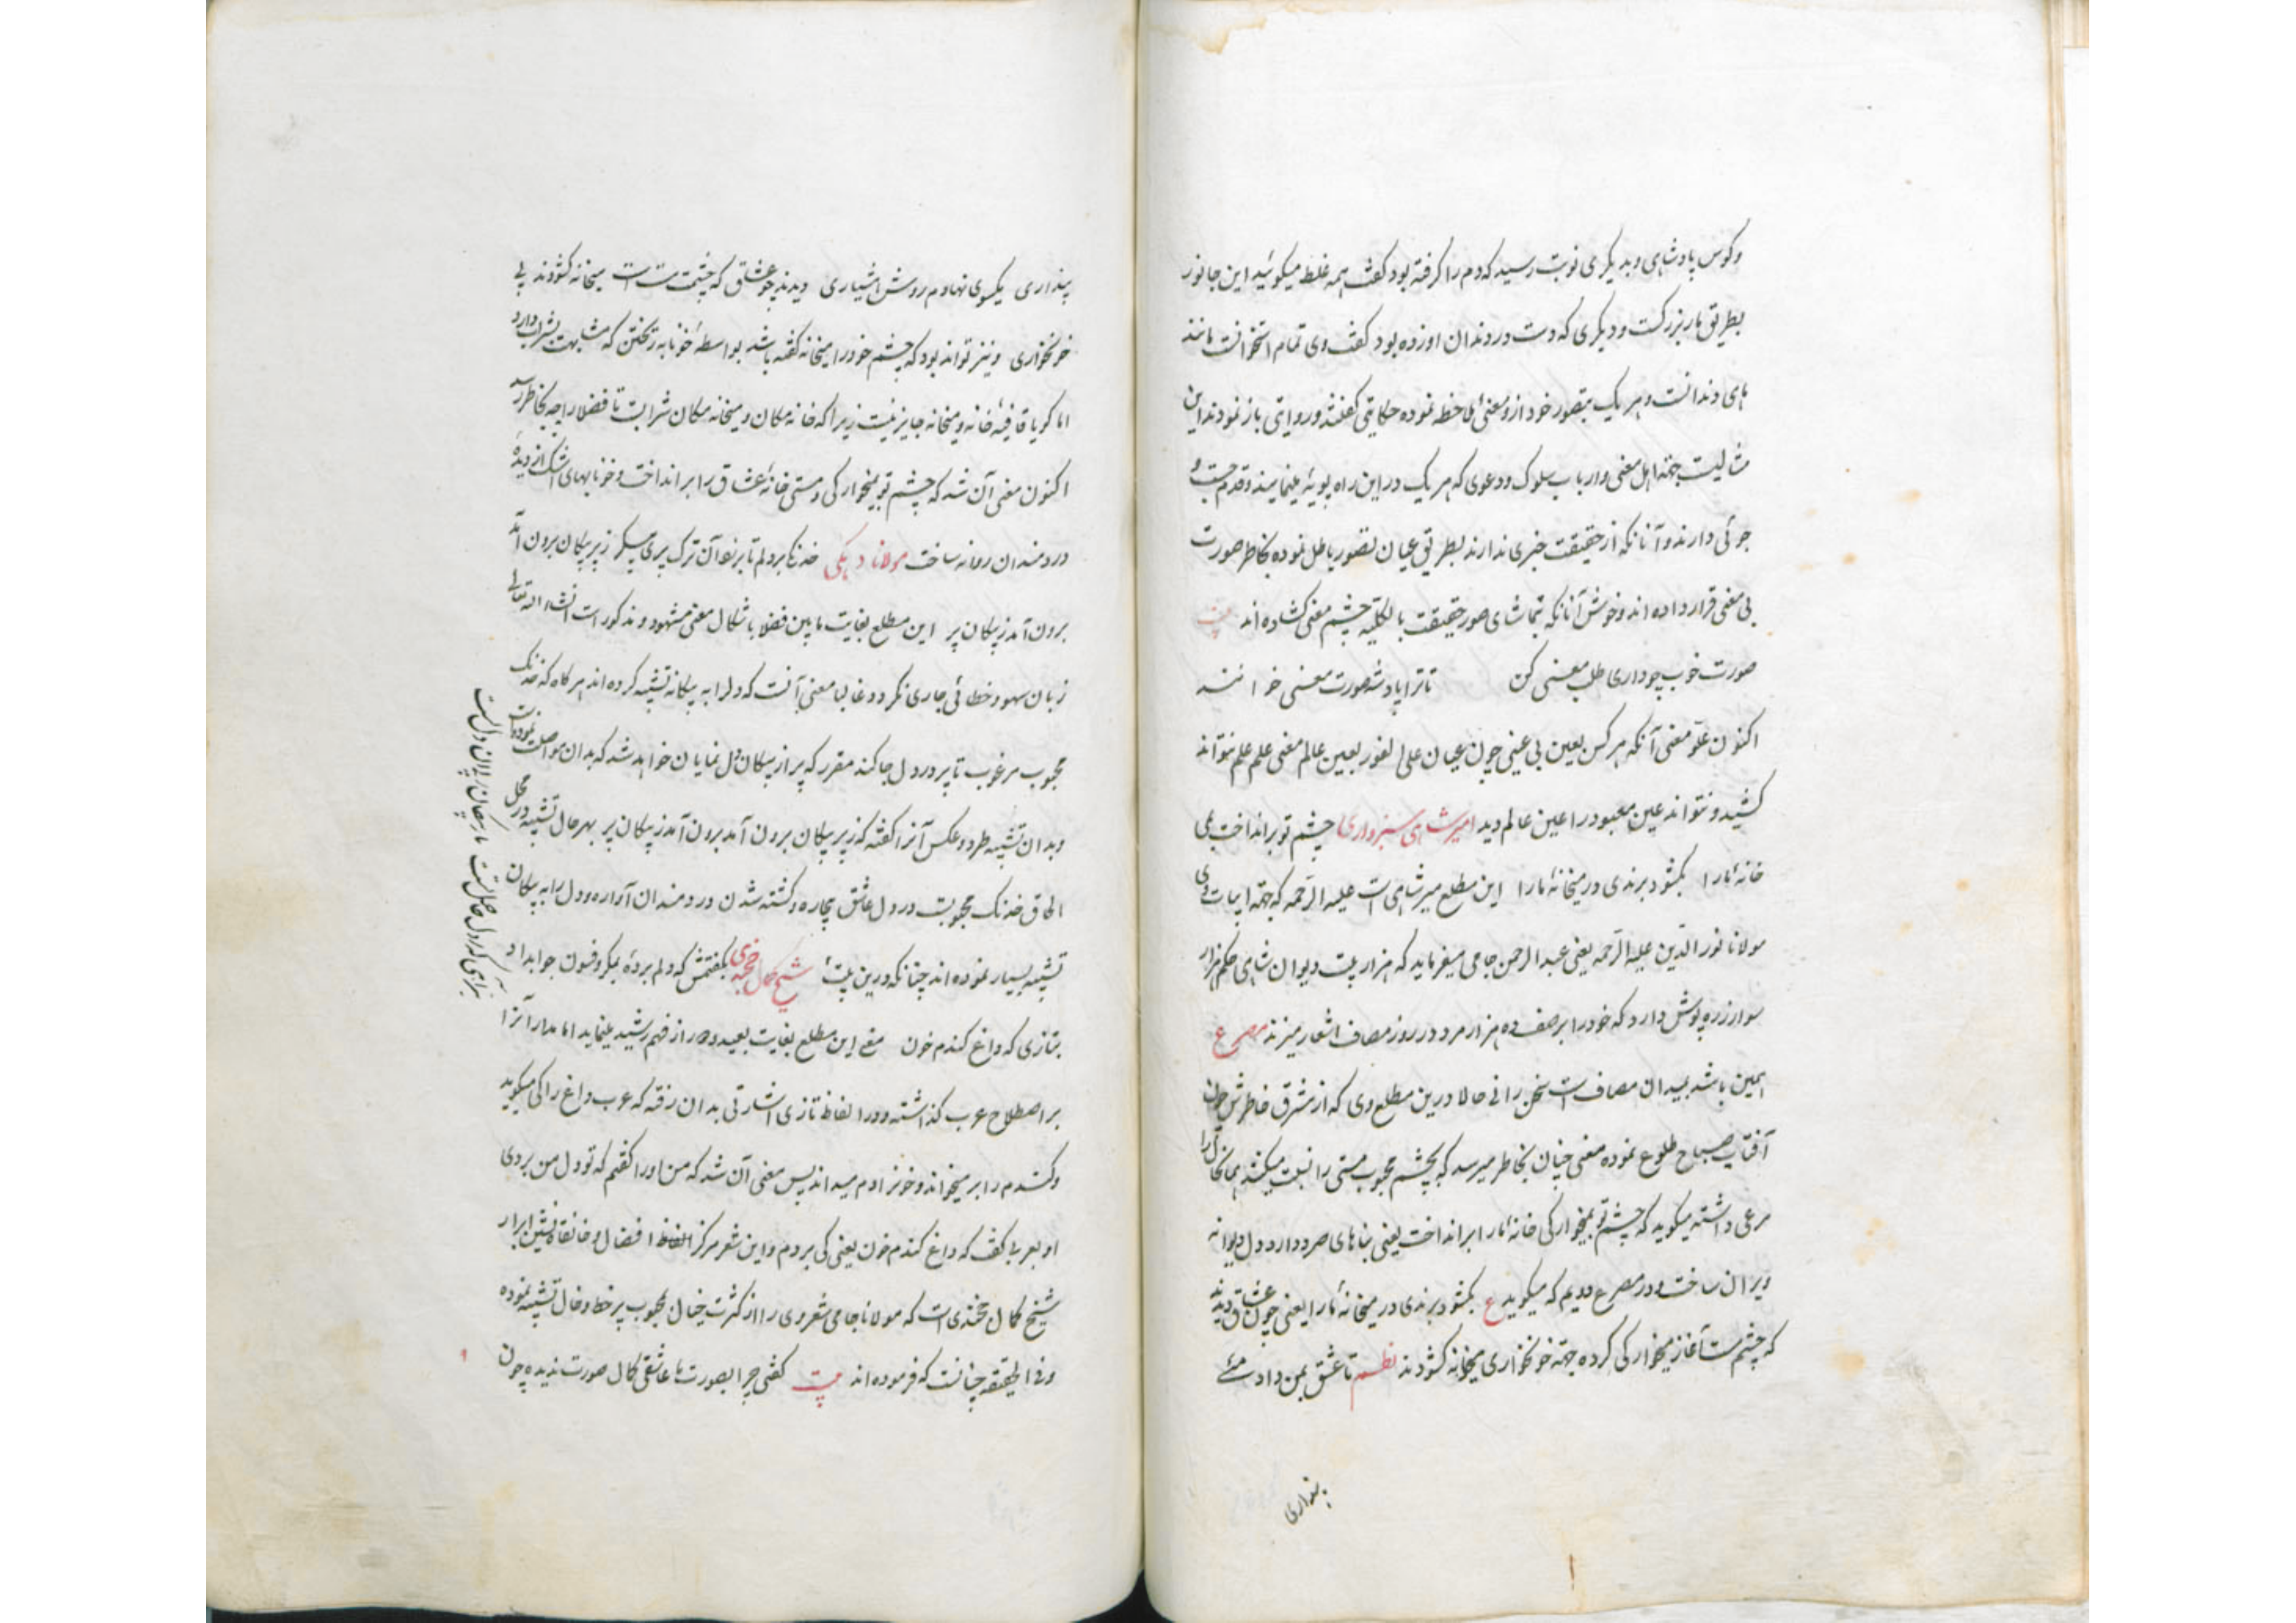 وکوس پادشاهی و بدیگری نوبت رسید که دم را گرفته بود گفت همه غلط میگوئید این جانور
بطریق مار بزرگست و دیگری که دست در دندان او زده بود گفت وی تمام استخوانست مانند
های دندانست و هر یک بتصور خود ازو معنئ ملاحظه نموده حکایتی گفتند و روایتی باز نمودند این
مثالیست جهة اهل معنی و ارباب سلوک و دعوی که هر یک در این راه پویهٔ مینمایند و قدم جست و
جوئی دارند و آنانکه از حقیقت خبری ندارند بطریق عمیان تصور باطل نموده بخاطر صورت
بی معنی قرار داده اند و خوش آنانکه بتماشای صور حقیقت بالکلیه چشم معنی کشاده اند بیت
صورت خوب چو داری طلب معنی کن تا ترا پادشه صورت معنی خوانند
اکنون علو معنی آنکه هر کس بعین بی عینی چون عمیان علی الفور بعین عالم معنی علم علم نتواند
کشید و نتواند عین معبود را عین عالم دید امیر شاهی سبزواری چشم تو برانداخت بمی
خانهٔ ما را بکشود برندی در میخانهٔ ما را این مطلع میر شاهی است علیه الرحمه که جهة ابیات وی
مولانا نور الدین علیه الرحمه یعنی عبد الرحمن جامی میفرماید که هزار بیت دیوان شاهی حکم هزار
سوار زره پوش دارد که خود را بر صف ده هزار مرد در روز مصاف اشعار میزند مصرع
همین باشد میدان مصاف است سخن رانی حالا درین مطلع وی که از مشرق خاطرش چون
آفتاب صباح طلوع نموده معنی چنان بخاطر میرسد که بچشم محبوب مستی را نسبت میکنند همانحال را
مرعی داشته میگوید که چشم تو بمیخوارگی خانهٔ ما را برانداخت یعنی بناهای صرد دارد دل دیوانه
ویران ساخت و در مصرع دویم که میگوید ع بکشود برندی در میخانهٔ ما را یعنی چون عشاق دیدند
که چشمت آغاز میخوارگی کرده جهة خونخواری میخانه کشودند نظم تا عشق بمن داد مئ
پنداری
پنداری یکسوی نهادم روش هشیاری دیدند چو عشاق که چشمت مست است میخانه کشودند پی
خونخواری و نیز تواند بود که چشم خود را میخانه گفته باشد بواسطهٔ خونابه ریختن که مشابهت بشراب دارد
اما گویا قافیهٔ خانه و میخانه جایز نیست زیرا که خانه مکان و میخانه مکان شرابست تا فضلا را چه بخاطر رسد
اکنون معنی آن شد که چشم تو بمیخوارگی و مستی خانهٔ عشاق را برانداخت و خونابهای اشک از دیدهٔ
دردمندان روانه ساخت مولانا دهکی خدنگا بر دلم تا پر زد آن ترک پری پیکر ز پر پیکان برون آمد
برون آمد ز پیکان پر این مطلع بغایت مابین فضلا باشکال معنی مشهود و مذکور است انشاء الله تعالی
زبان سهو و خطائی جاری نگردد و غالبا معنی آنست که دل را به پیکانه تشبیه کرده اند هر گاه که خدنگ
محبوب مرغوب تا پر در دل جا کند مقرر که پر از پیکان دل نمایان خواهد شد که بدان مواصلت نموده است
و بدان تشبیه طرد و عکس آنرا گفته که ز پر پیکان برون آمد برون آمد ز پیکان پر بهر حال تشبیه در محل
الحاق خدنگ محبوبست در دل عاشق بیچاره و کشته شدن دردمندان آواره و دل را به پیکان
تشبیه بسیار نموده اند چنانکه درین بیت شیخ کمال خجندی بگفتمش که دلم بردهٔ بمکر و فسون جواب داد
بتازی که داغ کندم خون معنی این مطلع بغایت بعید و دور از فهم رشید مینماید اما مدار آنرا
بر اصطلاح عرب گذاشته و در الفاظ تازی اشارتی بدان رفته که عرب داغ را کی میگوید
و گندم را بر میخواند و خون را دم میداند پس معنی آن شد که من او را گفتم که تو دل من بردی
او بعربی گفت که داغ گندم خون یعنی کی بردم و این شعر مرکز الفاظ افضال و خانقاه نشین ابرار
شیخ کمال خجندی است که مولانا جامی شعر وی را از کثرت خیال بمحبوب پر خط و خال تشبیه نموده
و فی الحقیقه چنانست که فرموده اند بیت گفتی چرا بصورت ما عاشقی کمال صورت ندیده چون